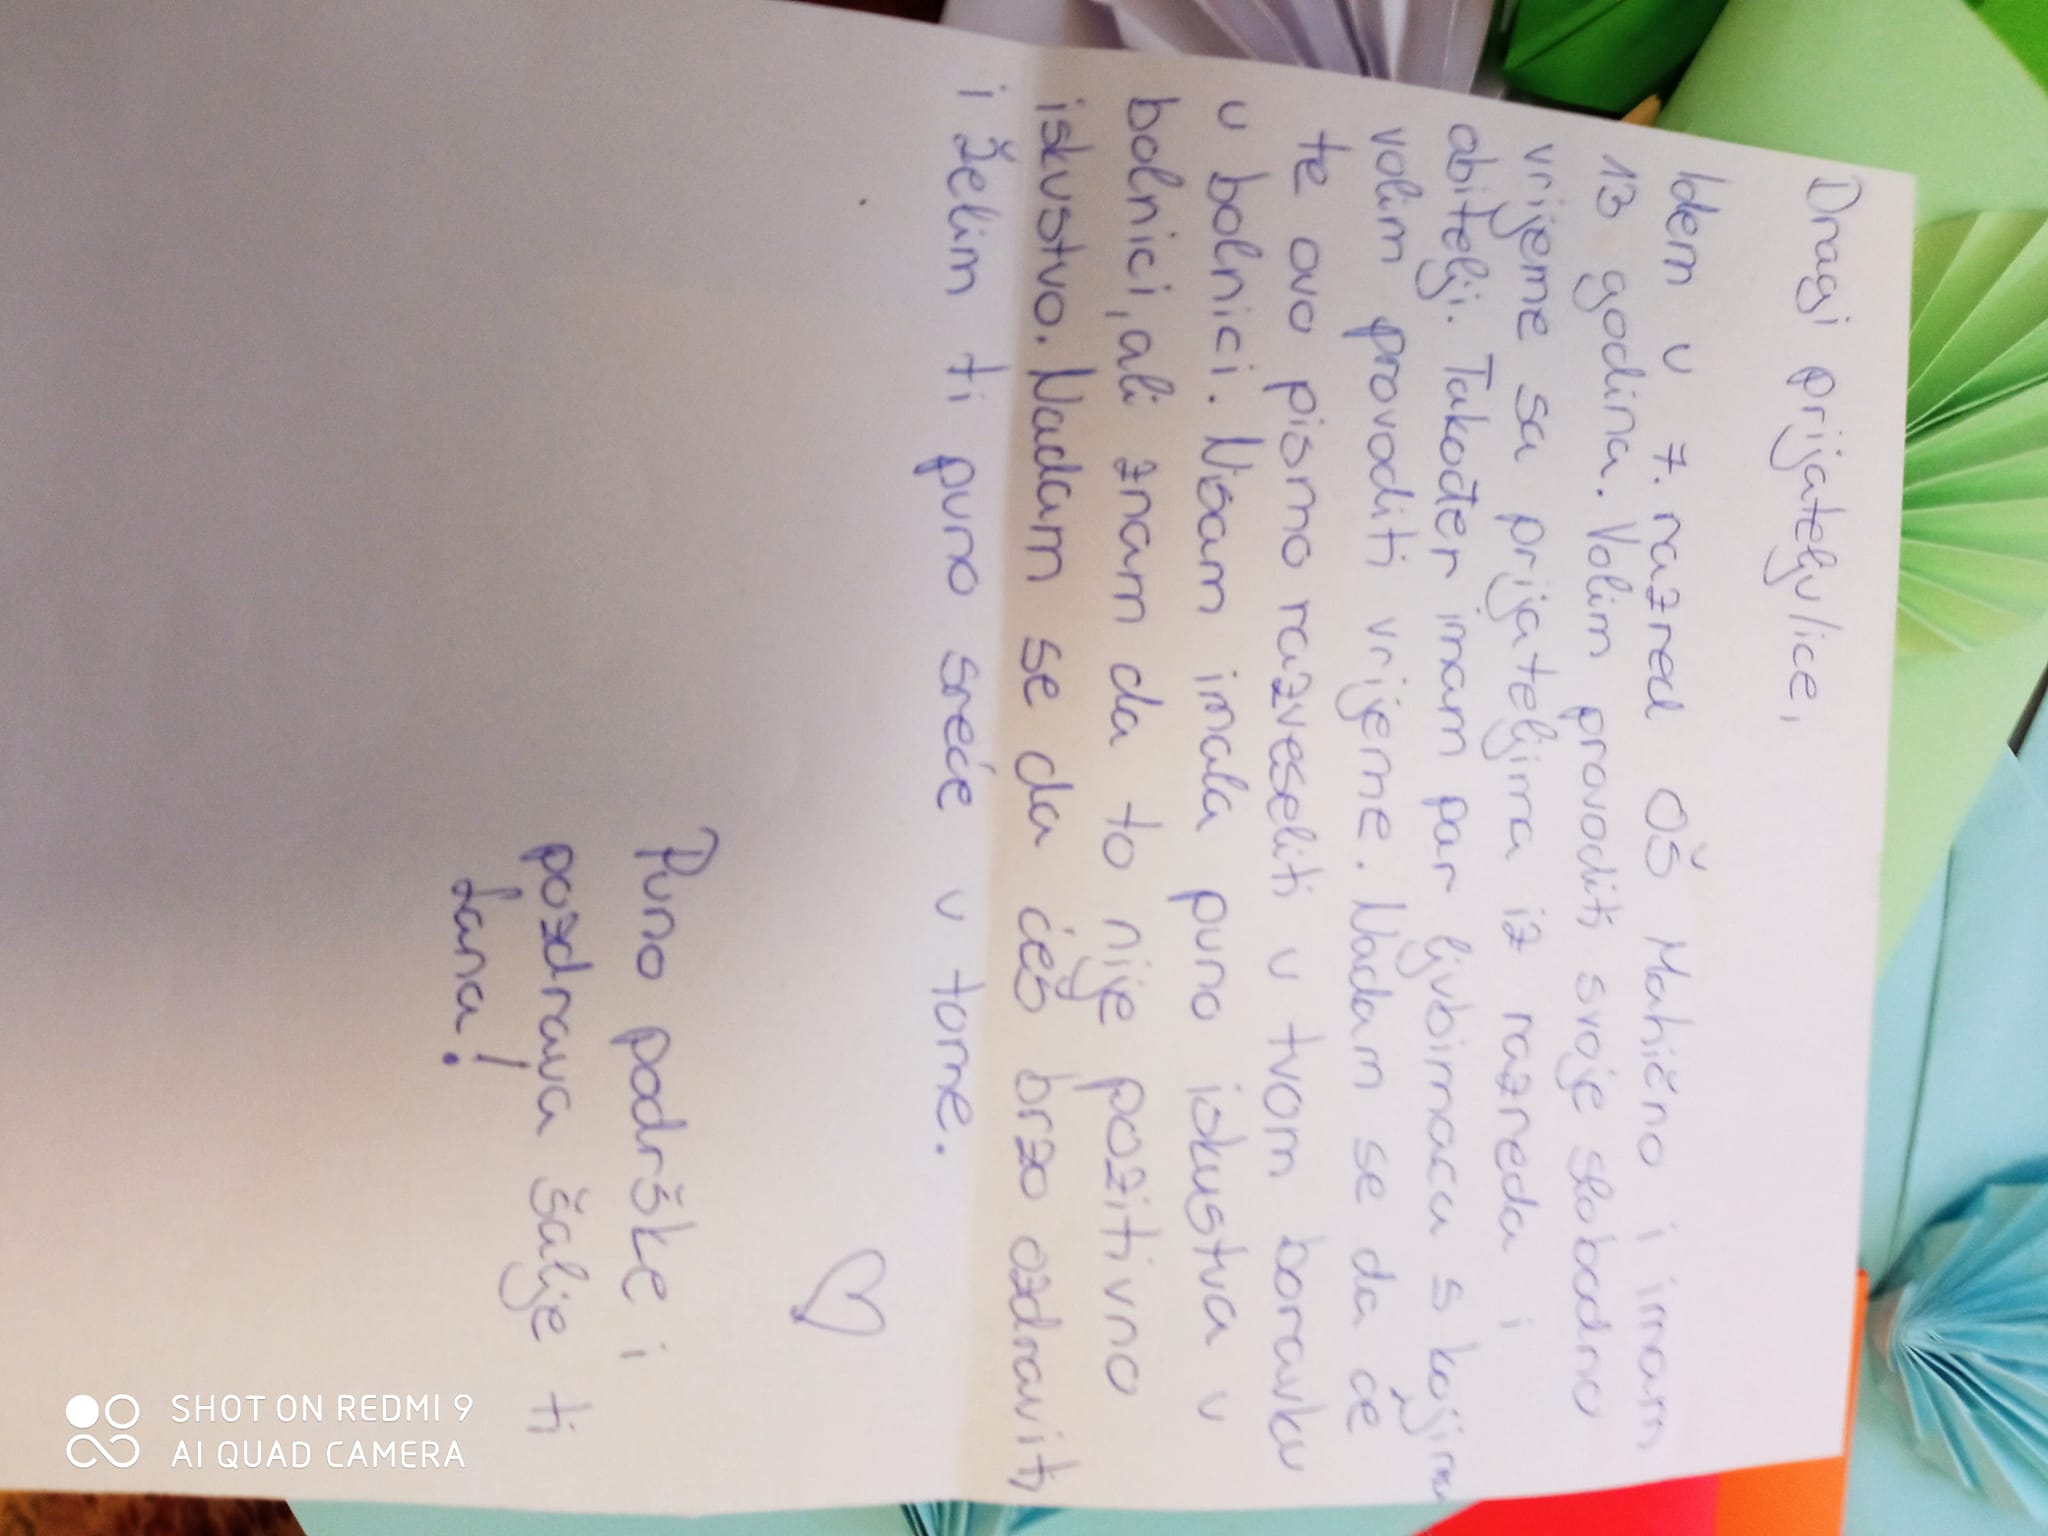 Dragi prijatelju/ice,
Idem u 7. razred OŠ Mahično i imam
13 godina. Volim provoditi svoje slobodno
vrijeme sa prijateljima iz razreda i
obitelji. Također imam par ljubimaca s kojima
volim provoditi vrijeme. Nadam se da će
te ovo pismo razveseliti u tvom boravku
u bolnici. Nisam imala puno iskustva u
bolnici, ali znam da to nije pozitivno
iskustvo. Nadam se da ćeš brzo ozdraviti
i želim ti puno sreće u tome.
Puno podrške i
pozdrava šalje ti
Lana!
SHOT ON REDMI 9
AI QUAD CAMERA